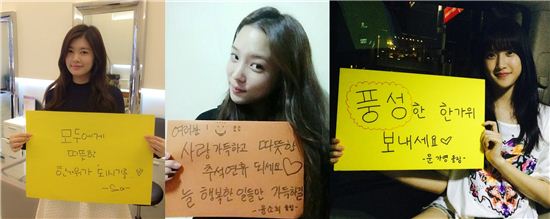 모두에게
따뜻한
한가위가 되시기를
여러분!
사랑 가득하고 따뜻한
추석연휴 되세요♡
늘 행복한 일들만 가득하길
-윤소희 올림-
풍성한 한가위
보내세요♡
-문가영 올림-